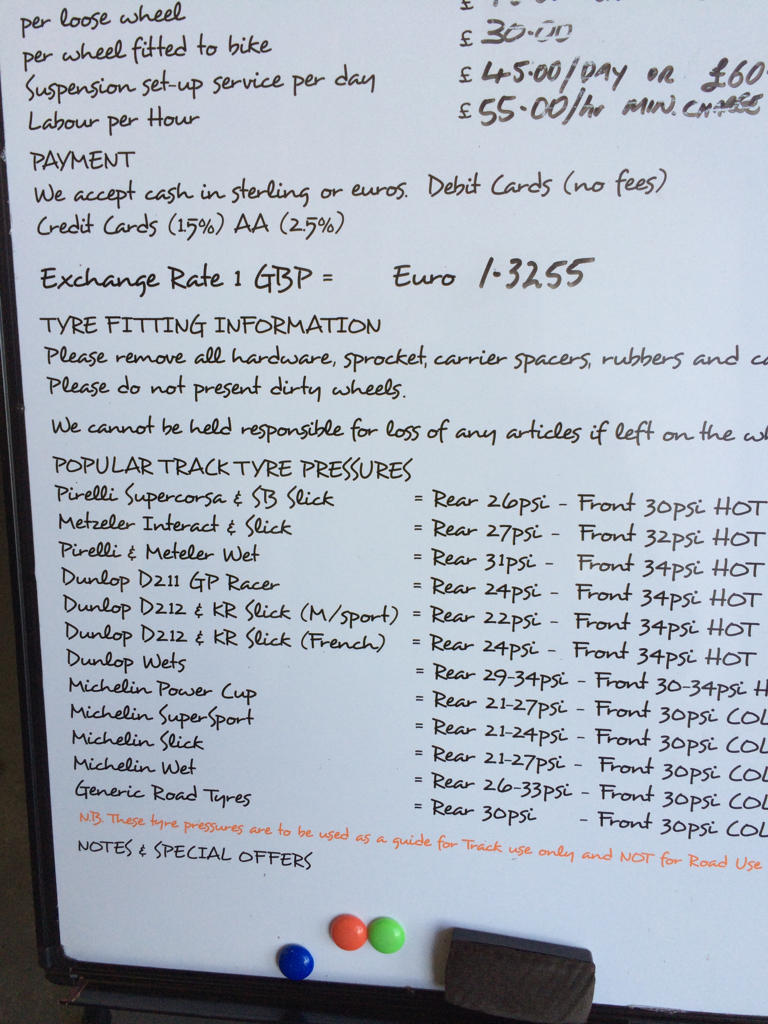 per loose wheel £
per wheel fitted to bike £ 30.00
Suspension set-up service per day £ 45.00/DAY OR £60
Labour per Hour £ 55.00/hr MIN.
PAYMENT
We accept cash in sterling or euros. Debit Cards (no fees)
Credit Cards (1.5%) AA (2.5%)
Exchange Rate 1 GBP = Euro 1.3255
TYRE FITTING INFORMATION
Please remove all hardware, sprocket, carrier spacers, rubbers and ca
Please do not present dirty wheels.
We cannot be held responsible for loss of any articles if left on the wh
POPULAR TRACK TYRE PRESSURES
Pirelli Supercorsa & SB Slick = Rear 26psi - Front 30psi HOT
Metzeler Interact & Slick = Rear 27psi - Front 32psi HOT
Pirelli & Meteler Wet = Rear 31psi - Front 34psi HOT
Dunlop D211 GP Racer = Rear 24psi - Front 34psi HOT
Dunlop D212 & KR Slick (M/sport) = Rear 22psi - Front 34psi HOT
Dunlop D212 & KR Slick (French) = Rear 24psi - Front 34psi HOT
Dunlop Wets = Rear 29-34psi - Front 30-34psi H
Michelin Power Cup = Rear 21-27psi - Front 30psi COL
Michelin SuperSport = Rear 21-24psi - Front 30psi COL
Michelin Slick = Rear 21-27psi - Front 30psi COL
Michelin Wet = Rear 26-33psi - Front 30psi COL
Generic Road Tyres = Rear 30psi - Front 30psi COL
N.B. These tyre pressures are to be used as a guide for Track use only and NOT for Road Use
NOTES & SPECIAL OFFERS